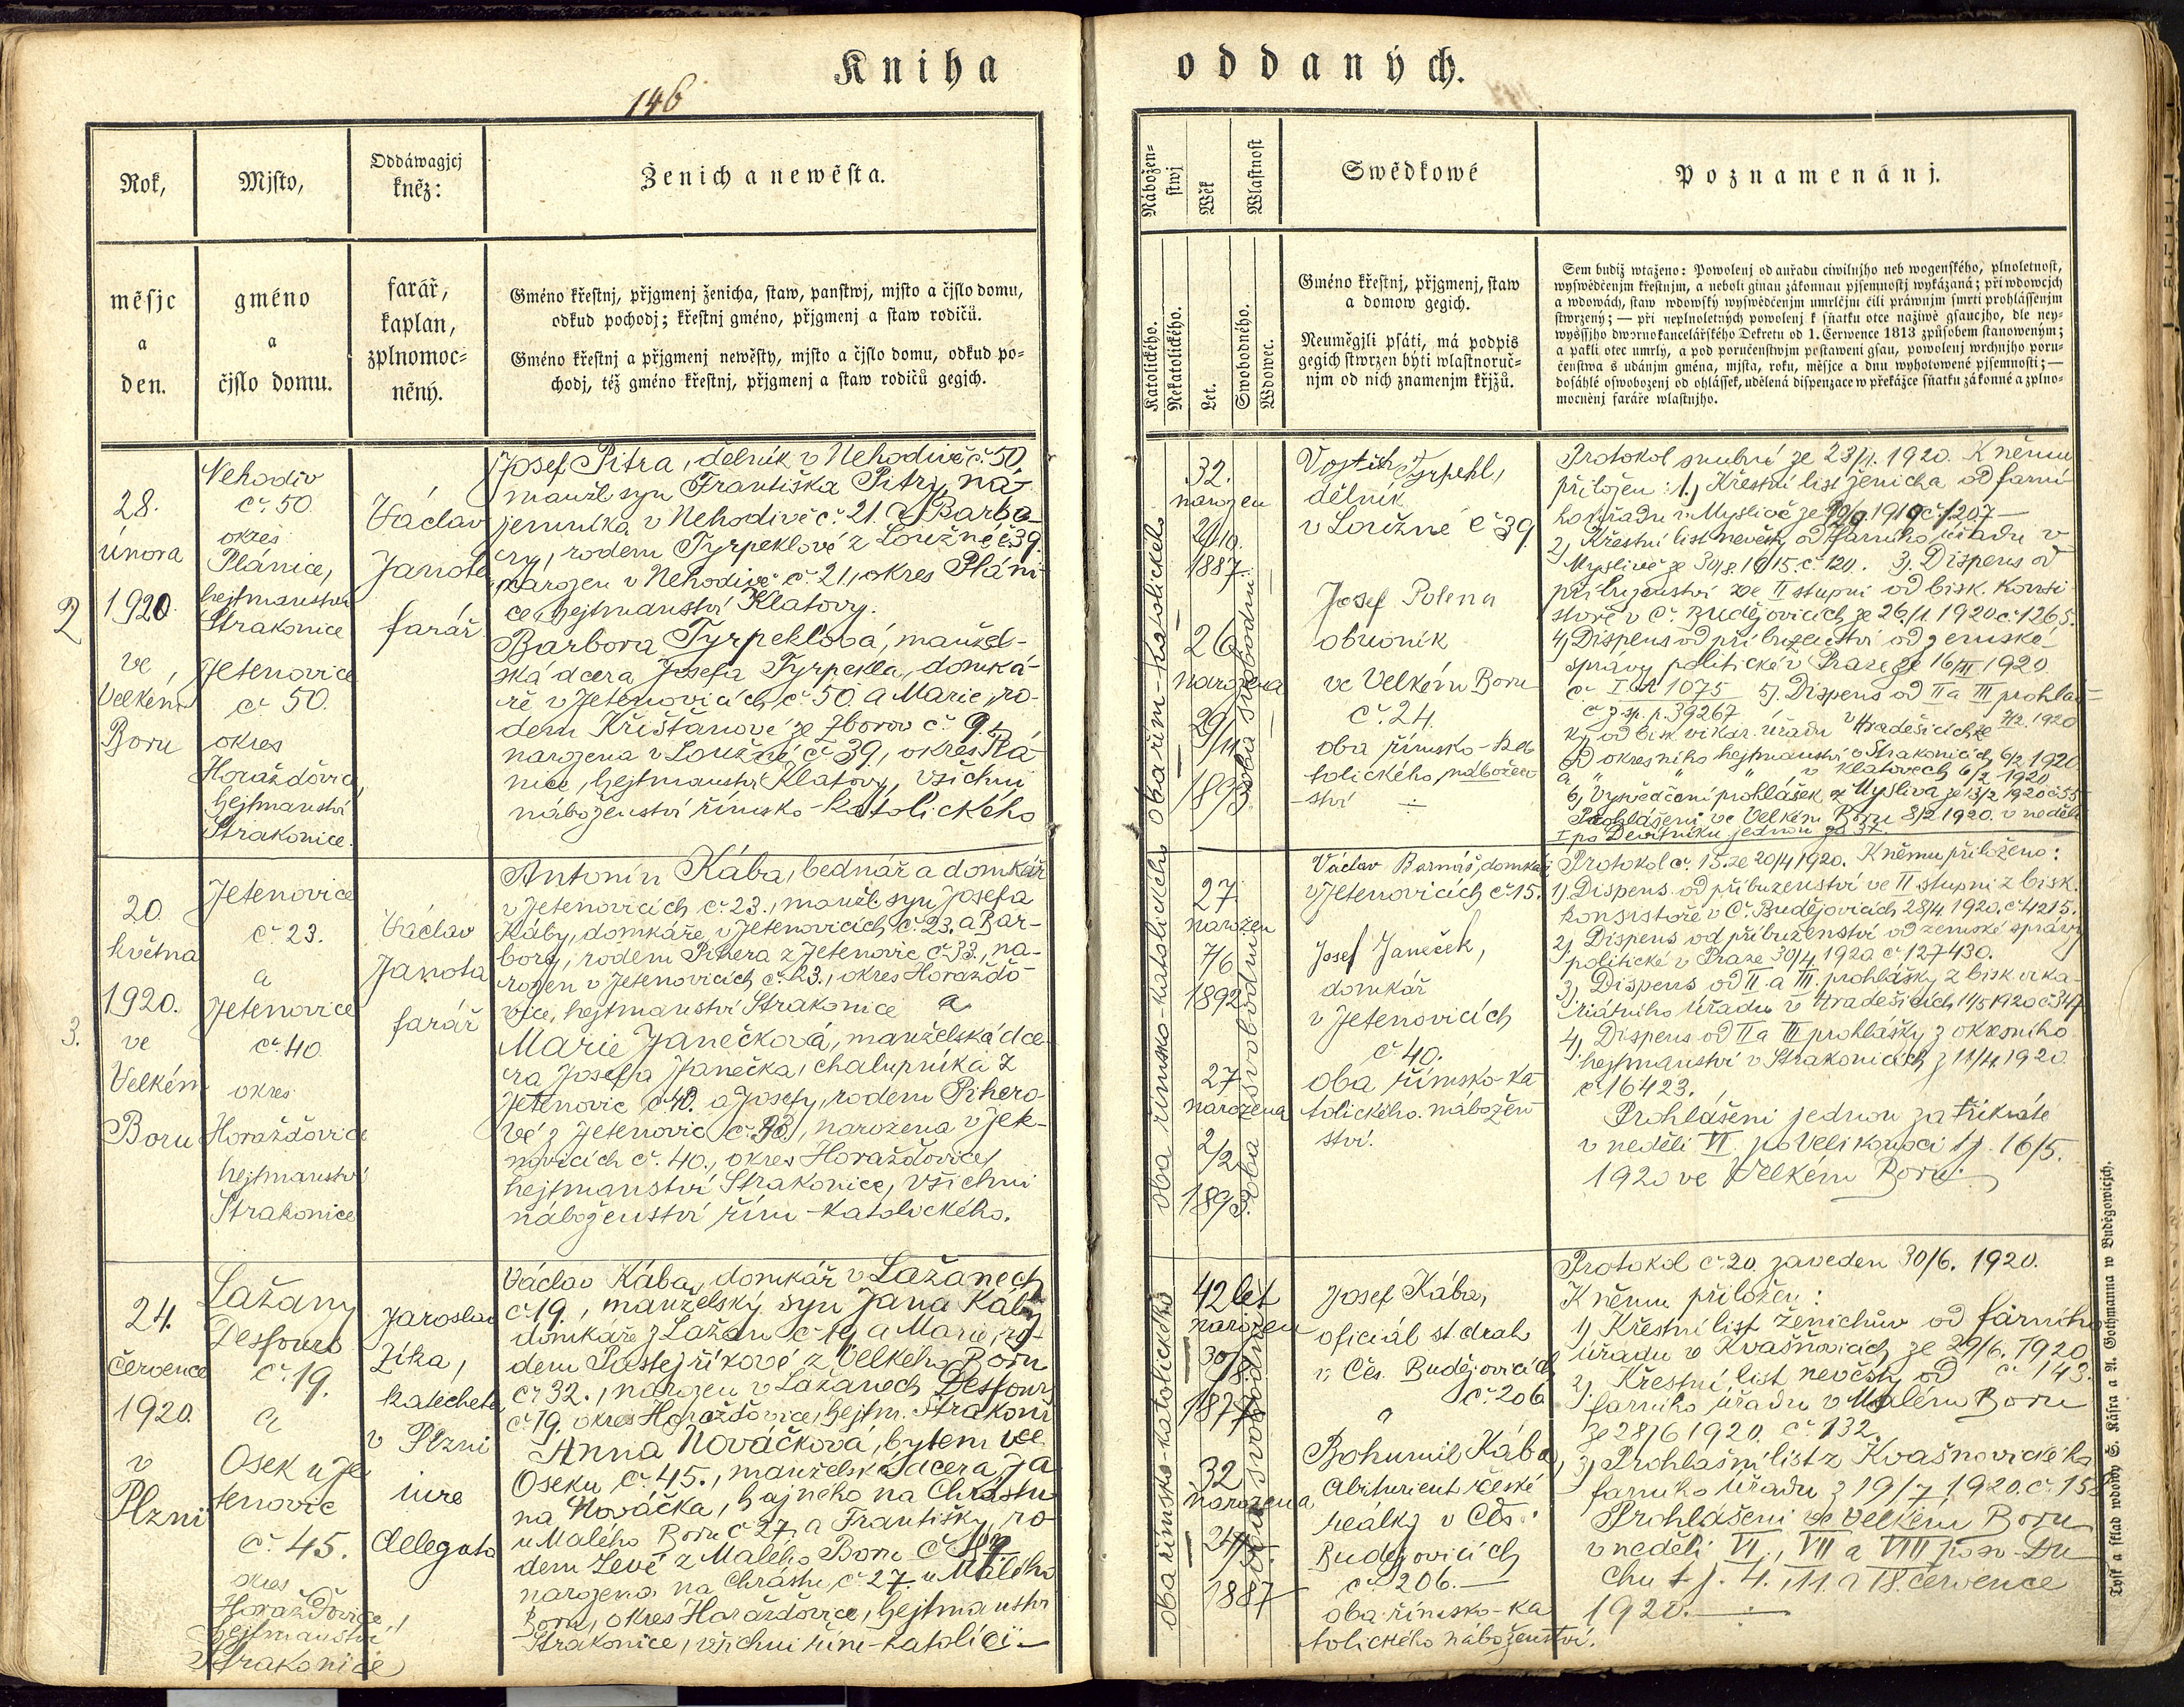 Kniha
146
Rok,
měsjc
a
den.
Mjsto,
gméno
a
čjslo domu.
Oddáwagjcj
kněz:
farář,
kaplan,
zplnomoc=
něný.
Ženich a newěsta.
Gméno křestnj, přjgmenj ženicha, staw, panstwj, mjsto a čjslo domu,
odkud pochodj; křestnj gméno, přjgmenj a staw rodičů.
Gméno křestnj a přjgmenj newěsty, mjsto a čjslo domu, odkud po=
chodj, též gméno křestnj, přjgmenj a staw rodičů gegich.
2
28.
února
1920.
ve
Velkém
Boru
Nehodiv
č. 50.
okres
Plánice,
hejtmanství
Strakonice
Jetenovice
č. 50.
okres
Horažďovice,
hejtmanství
Strakonice.
Václav
Janota
farář
Josef Pitra, dělník v Nehodivě č. 50
manžl. syn Františka Pitry, ná-
jemníka v Nehodivě č. 21. a Barbo-
ry, rodem Tyrpeklové z Loužné č 39.
narozen v Nehodivě č. 21., okres Pláni-
ce, hejtmanství Klatovy.
Barbora Tyrpeklová, manžel-
ská dcera Josefa Tyrpekla, domká-
ře v Jetenovicích č. 50. a Marie, ro-
dem Křišťanové ze Zborov č. 9.,
narozena v Loužné č. 39., okres Plá-
nice, hejtmanství Klatovy, všichni
náboženství římsko-katolického
3.
20.
května
1920.
ve
Velkém
Boru
Jetenovice
č. 23.
a
Jetenovice
č. 40.
okres
Horažďovice
hejtmanství
Strakonice
Václav
Janota
farář
Antonín Kába, bednář a domkář
v Jetenovicích č. 23., manžl. syn Josefa
Káby, domkáře v Jetenovicích č. 23. a Bar-
bory, rodem Pihera z Jetenovic č. 33., na-
rozen v Jetenovicích č. 23., okres Horažďo-
vice, hejtmanství Strakonice a
Marie Janečková, manželská dce-
ra Josefa Janečka, chalupníka z
Jetenovic č. 40. a Josefy, rodem Pihero-
vé z Jetenovic č. 33, narozena v Jete-
novicích č. 40., okres Horažďovice,
hejtmanství Strakonice, všichni
náboženství řím-katolického.
24.
července
1920.
v
Plzni
Lažany
Desfours
č. 19.
a
Osek u Je-
tenovic
č. 45.
okres
Horažďovice,
hejtmanství
Strakonice
Jaroslav
Zíka,
katecheta
v Plzni
iure
delegato
Václav Kába, domkář v Lažanech
č. 19., manželský syn Jana Káby
domkáře z Lažan č. 19 a Marie, ro-
dem Pastejříkové z Velkého Boru
č. 32., narozen v Lažanech Desfours
č. 19. okres Horažďovice, hejtm. Strakoni
Anna Nováčková, bytem ve
Oseku č. 45., manželská dcera Ja-
na Nováčka, hajného na Chrástu
u Malého Boru č 27. a Františky, ro-
dem Levé z Malého Boru č.
narozena na Chrástu č. 27. u Malého
Boru, okres Horažďovice, hejtmanství
Strakonice, všichni řím-katolíci—
oddaných.
Nábožen=
stwj
Katolického.
Nekatolického.
Wěk
Let.
Wlastnost
Swobodného.
Wdowec.
Swědkowé
Gméno křestnj, přjgmenj, staw
a domow gegich.
Neumějgli psáti, má podpis
gegich stwrzen býti wlastnoruč=
njm od nich znamenjm křjžů.
Poznamenánj.
Sem budiž wtaženo: Powolenj od auřadu ciwilnjho neb wogenského, plnoletnost,
wyswědčenjm křestnjm, a neboli ginau zákonnau pjsemnostj wykázaná; při wdowcjch
a wdowách, staw wdowský wyswědčenjm umrlčjm čili práwnjm smrti prohlássenjm
stwrzený; — při neplnoletných powolenj k sňatku otce naživě gsaucjho, dle ney=
wyššjho dwornokancelářského Dekretu od 1. Července 1813 způsobem stanoweným;
a pakli otec umrlý, a pod poručenstwjm postaweni gsau, powolenj wrchnjho poru=
čenstwa s udánjm gména, mjsta, roku, měsjce a dnu wyhotowené pjsemnosti; —
dosáhlé oswobozenj od ohlássek, udělená dispenzace w překážce sňatku zákonné a zplno=
mocněnj faráře wlastnjho.
oba řím-katolického
32.
narozen
2/10.
1887.
26
narozena
29/11
oba svobodni
Vojtěch Tyrpekl,
dělník
v Loužné č 39
Josef Polena
obuvník
ve Velkém Boru
č. 24.
oba římsko-ka-
tolického nábožen-
ství
Protokol snubní ze 23/1. 1920. K němu
přiložen: 1.) Křestní list ženicha od farní-
ho úřadu v Myslivě
2) Křestní list nevěsty od farního úřadu v
Myslivě 3). Dispens od
příbuzenství ve II stupni od bisk. konsi-
stoře v Č. Budějovicích ze 26/1. 1920 č. 1265.
4) Dispens od příbuzenství od zemské
správy politické v Praze ze 16/II 1920
5). Dispens od II a III prohláš-
ky od bisk. vikár. úřadu v Hradešicích ze 7/2. 1920
Od okresního hejtmanství v Strakonicích 6/2 1920
a " " " v Klatovech 6/2 1920
6) Vysvědčení prohlášek z Myslíva ze 13/2 1920 č. 55
Prohlášeni ve Velkém Boru 8/2 1920. v neděli
I po Devítníku jednou za 3x.
oba římsko-katolického
27.
narozen
7/6
1892
27
narozena
2/2
1893.
oba svobodni
Václav Barnáš, domkář
v Jetenovicích č. 15.
Josef Janeček,
domkář
v Jetenovicích
č. 40.
oba římsko-ka-
tolického nábožen-
ství.
Protokol č. 15. ze 20/4 1920. K němu přiloženo:
1). Dispens od příbuzenství ve II stupni z bisk.
konsistoře v Č. Budějovicích 28/4. 1920. č. 4215.
2). Dispens od příbuzenství od zemské správy
politické v Praze 30/4. 1920 č. 127430.
3) Dispens od II. a III. prohlášky z bisk. vika-
riátního úřadu v Hradešicích 11/5 1920 č. 347
4) Dispens od II a III prohlášky z okresního
hejtmanství v Strakonicích z 11/4. 1920
č. 16423.
Prohlášeni jednou za třikráte
v neděli VI. po Velikonoci tj. 16/5.
1920 ve Velkém Boru.
oba římsko-katolického
42 let
narozen
30/8.
1877
32
narozena
24/
1887
oba svobodni
Josef Kába,
oficiál st. drah
v Čes. Budějovicích
č. 206
a
Bohumil Kába,
Abiturient české
reálky v Čes.
Budějovicích
č. 206.—
oba římsko-ka-
tolického náboženství.
Protokol č. 20. zaveden 30/6. 1920.
K němu přiložen:
1) Křestní list ženichův od farního
úřadu v Kvašňovicích ze 29/6. 1920
č 143.
2) Křestní list nevěsty od
farního úřadu v Malém Boru
ze 28/6 1920. č. 132.
3) Prohlašní list z Kvašňovického
farního úřadu z 19/7 1920. č. 158
Prohlášeni ve Velkém Boru
v neděli VI., VII a VIII po sv. Du-
chu t. j. 4., 11. a 18. července
1920.—
Tisk a sklad wdowy S. Kásra a A. Gothmanna w Buděgowicjch.